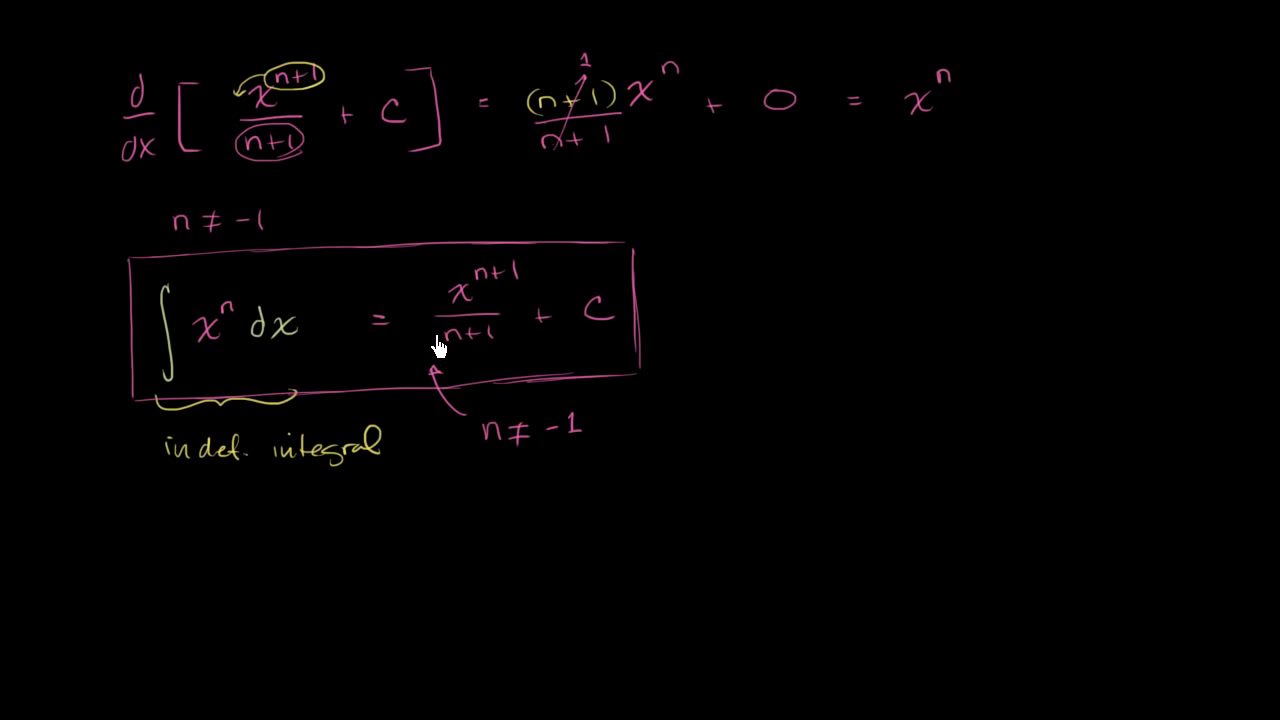 d/dx [ x^(n+1)/(n+1) + C ] = (n+1)x^n/(n+1) + 0 = x^n
1
n ≠ -1
∫ x^n dx = x^(n+1)/(n+1) + C
n ≠ -1
indef. integral